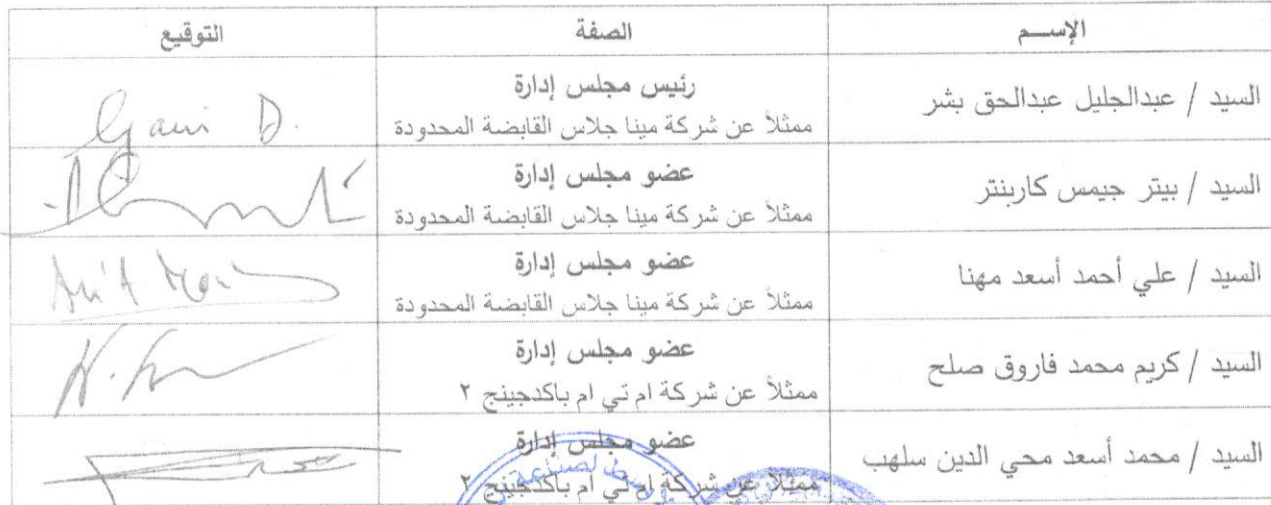 الإســـم الصفة التوقيع
السيد / عبدالجليل عبدالحق بشر
رئيس مجلس إدارة
ممثلاً عن شركة مينا جلاس القابضة المحدودة
السيد / بيتر جيمس كاربنتر
عضو مجلس إدارة
ممثلاً عن شركة مينا جلاس القابضة المحدودة
السيد / علي أحمد أسعد مهنا
عضو مجلس إدارة
ممثلاً عن شركة مينا جلاس القابضة المحدودة
السيد / كريم محمد فاروق صلح
عضو مجلس إدارة
ممثلاً عن شركة ام تي ام باكدجينج ٢
السيد / محمد أسعد محي الدين سلهب
عضو مجلس إدارة
ممثلاً عن شركة ام تي ام باكدجينج ٢